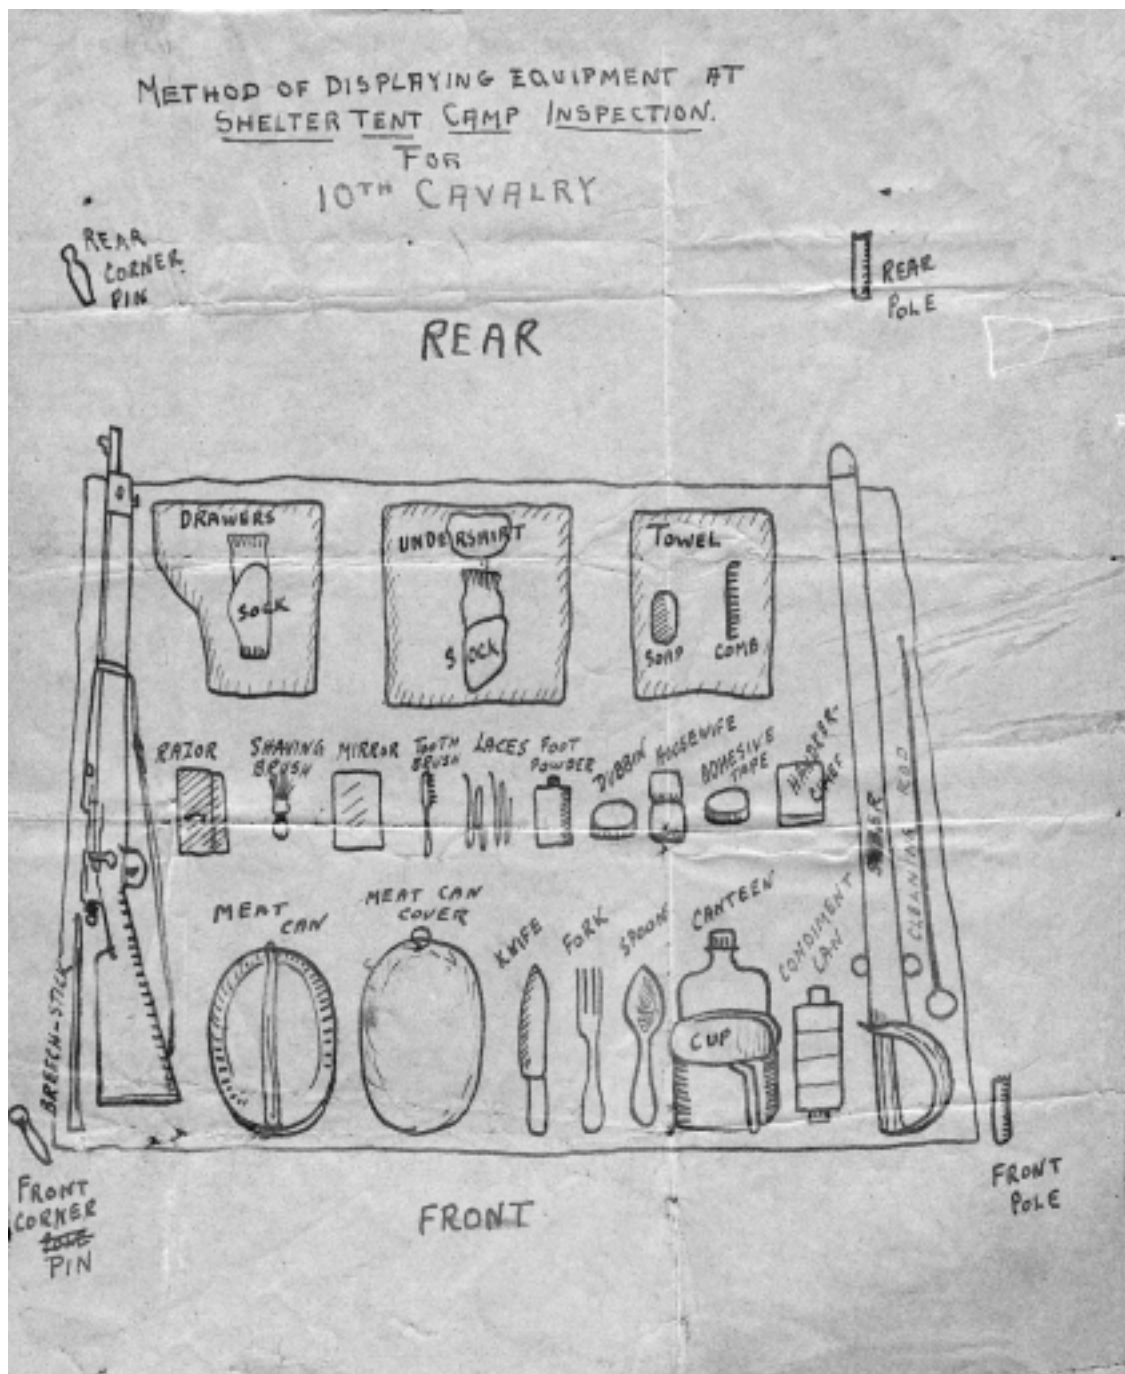 METHOD OF DISPLAYING EQUIPMENT AT
SHELTER TENT CAMP INSPECTION.
FOR
10TH CAVALRY
REAR
CORNER
PIN
REAR
POLE
REAR
DRAWERS
SOCK
UNDERSHIRT
SOCK
TOWEL
SOAP
COMB
RAZOR
SHAVING
BRUSH
MIRROR
TOOTH
BRUSH
LACES
FOOT
POWDER
DUBBIN
HOUSEWIFE
ADHESIVE
TAPE
HANDKER-
CHIEF
SABER
CLEANING ROD
MEAT
CAN
MEAT CAN
COVER
KNIFE
FORK
SPOON
CANTEEN
CUP
CONDIMENT
CAN
BREECH-STICK
FRONT
CORNER
POLE
PIN
FRONT
FRONT
POLE